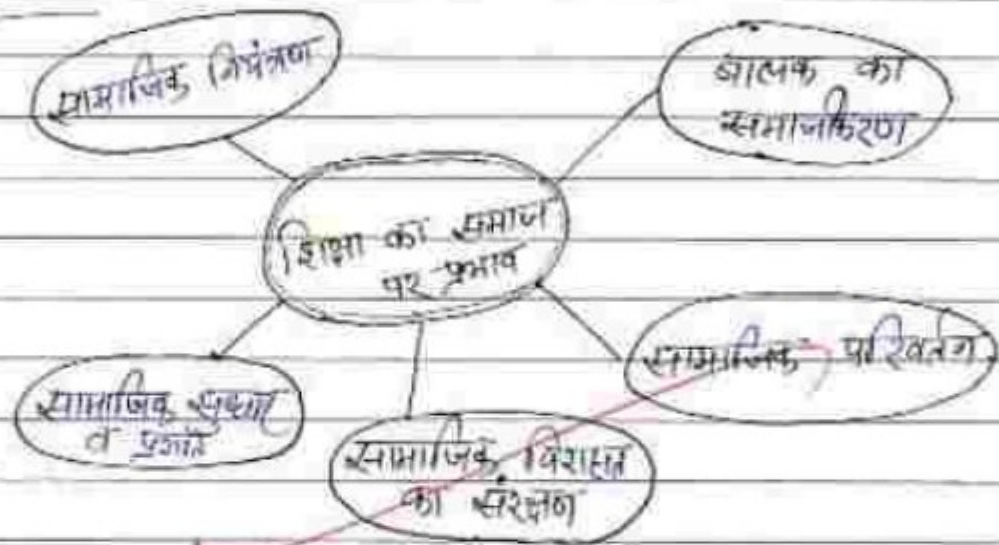 सामाजिक नियंत्रण
बालक का
समाजीकरण
शिक्षा का समाज
पर प्रभाव
सामाजिक परिवर्तन
सामाजिक सुधार
व प्रगति
सामाजिक विरासत
का संरक्षण